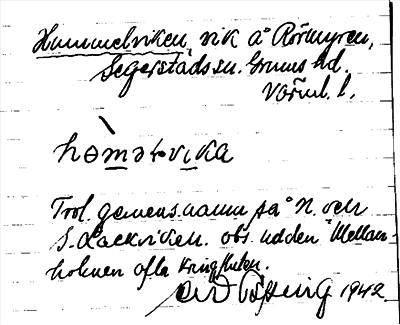 Hummelviken, vik å Rörmyren,
Segerstads sn. Grums hd.
Värml. l.
hə̀mət-vika
Trol. gemens. namn på N. och
S. Lackviken. obs. udden Mellan-
holmen ofta kringfluten.
1942